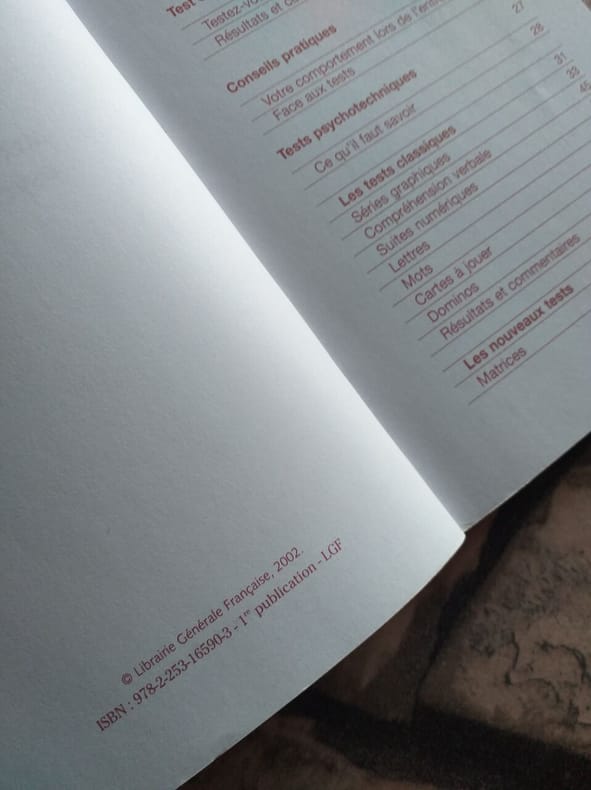 © Librairie Générale Française, 2002.
ISBN : 978-2-253-16590-3 - 1re publication - LGF
Test
Testez-vo
Résultats et c
Conseils pratiques
Votre comportement lors de l'entre
27
Face aux tests
28
Tests psychotechniques
Ce qu'il faut savoir
31
Les tests classiques
33
Séries graphiques
45
Compréhension verbale
Suites numériques
Lettres
Mots
Cartes à jouer
Dominos
Résultats et commentaires
Les nouveaux tests
Matrices